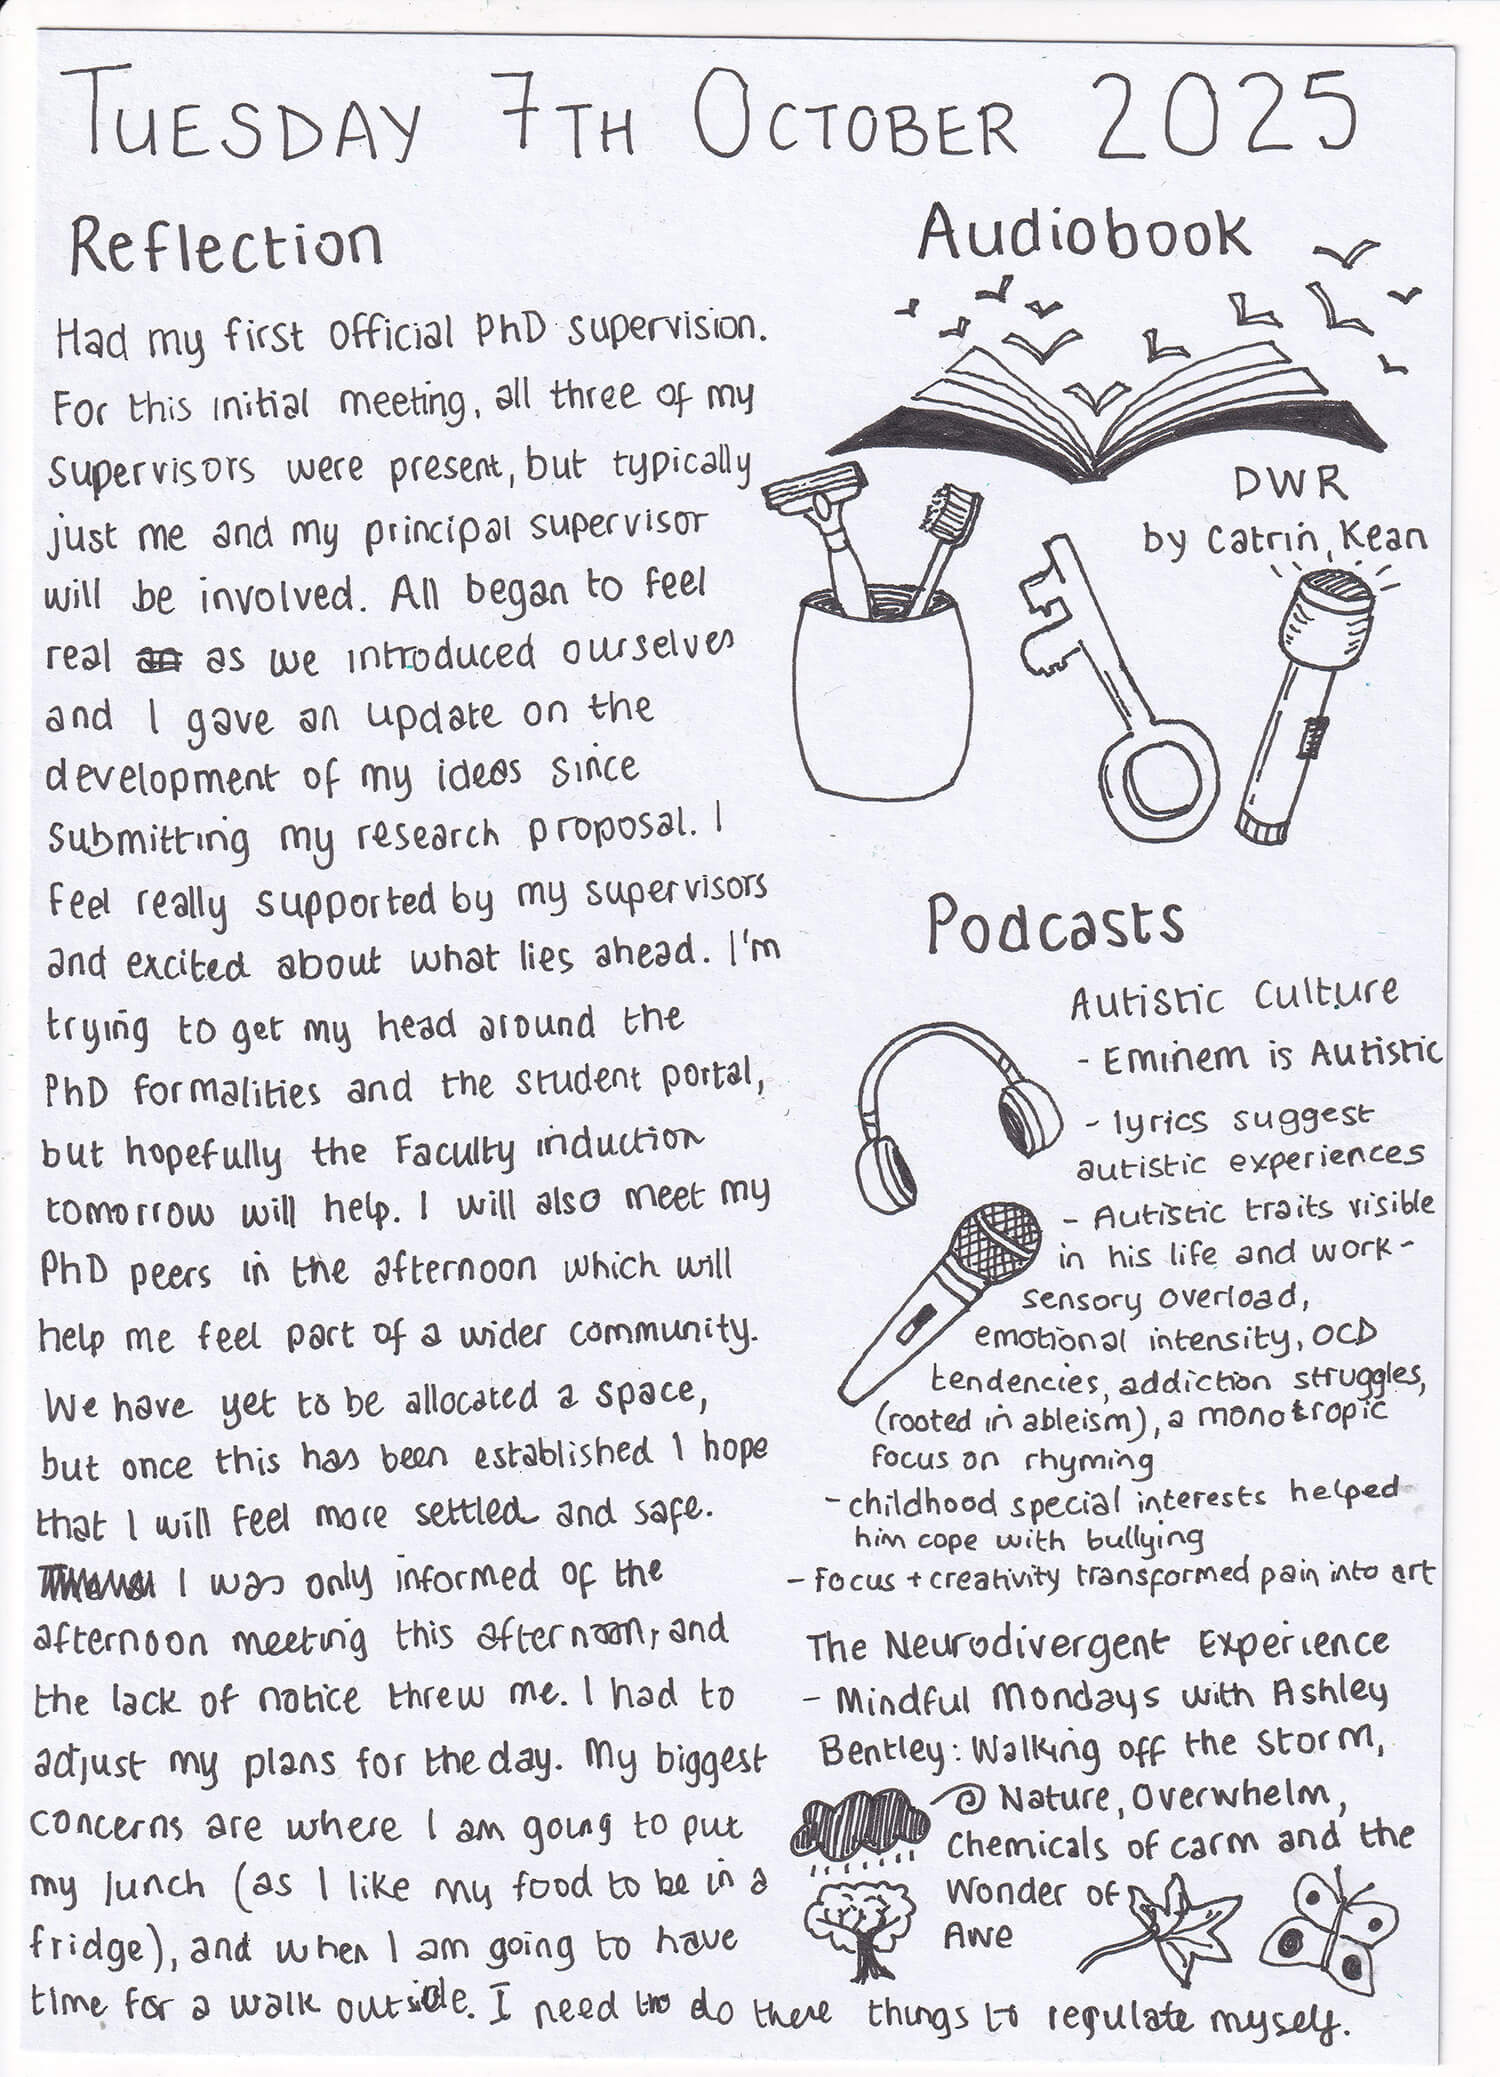 TUESDAY 7TH OCTOBER 2025
Reflection
Had my first official PhD supervision.
For this initial meeting, all three of my
supervisors were present, but typically
just me and my principal supervisor
will be involved. All began to feel
real as we introduced ourselves
and I gave an update on the
development of my ideas since
submitting my research proposal. I
feel really supported by my supervisors
and excited about what lies ahead. I'm
trying to get my head around the
PhD formalities and the student portal,
but hopefully the Faculty induction
tomorrow will help. I will also meet my
PhD peers in the afternoon which will
help me feel part of a wider community.
We have yet to be allocated a space,
but once this has been established I hope
that I will feel more settled and safe.
I was only informed of the
afternoon meeting this afternoon, and
the lack of notice threw me. I had to
adjust my plans for the day. My biggest
concerns are where I am going to put
my lunch (as I like my food to be in a
fridge), and when I am going to have
time for a walk outside. I need to do these things to regulate myself.
Audiobook
DWR
by Catrin Kean
Podcasts
Autistic Culture
- Eminem is Autistic
- lyrics suggest
autistic experiences
- Autistic traits visible
in his life and work -
sensory overload,
emotional intensity, OCD
tendencies, addiction struggles,
(rooted in ableism), a monotropic
focus on rhyming
- childhood special interests helped
him cope with bullying
- focus + creativity transformed pain into art
The Neurodivergent Experience
- Mindful Mondays with Ashley
Bentley: Walking off the storm,
Nature, Overwhelm,
Chemicals of carm and the
Wonder of
Awe